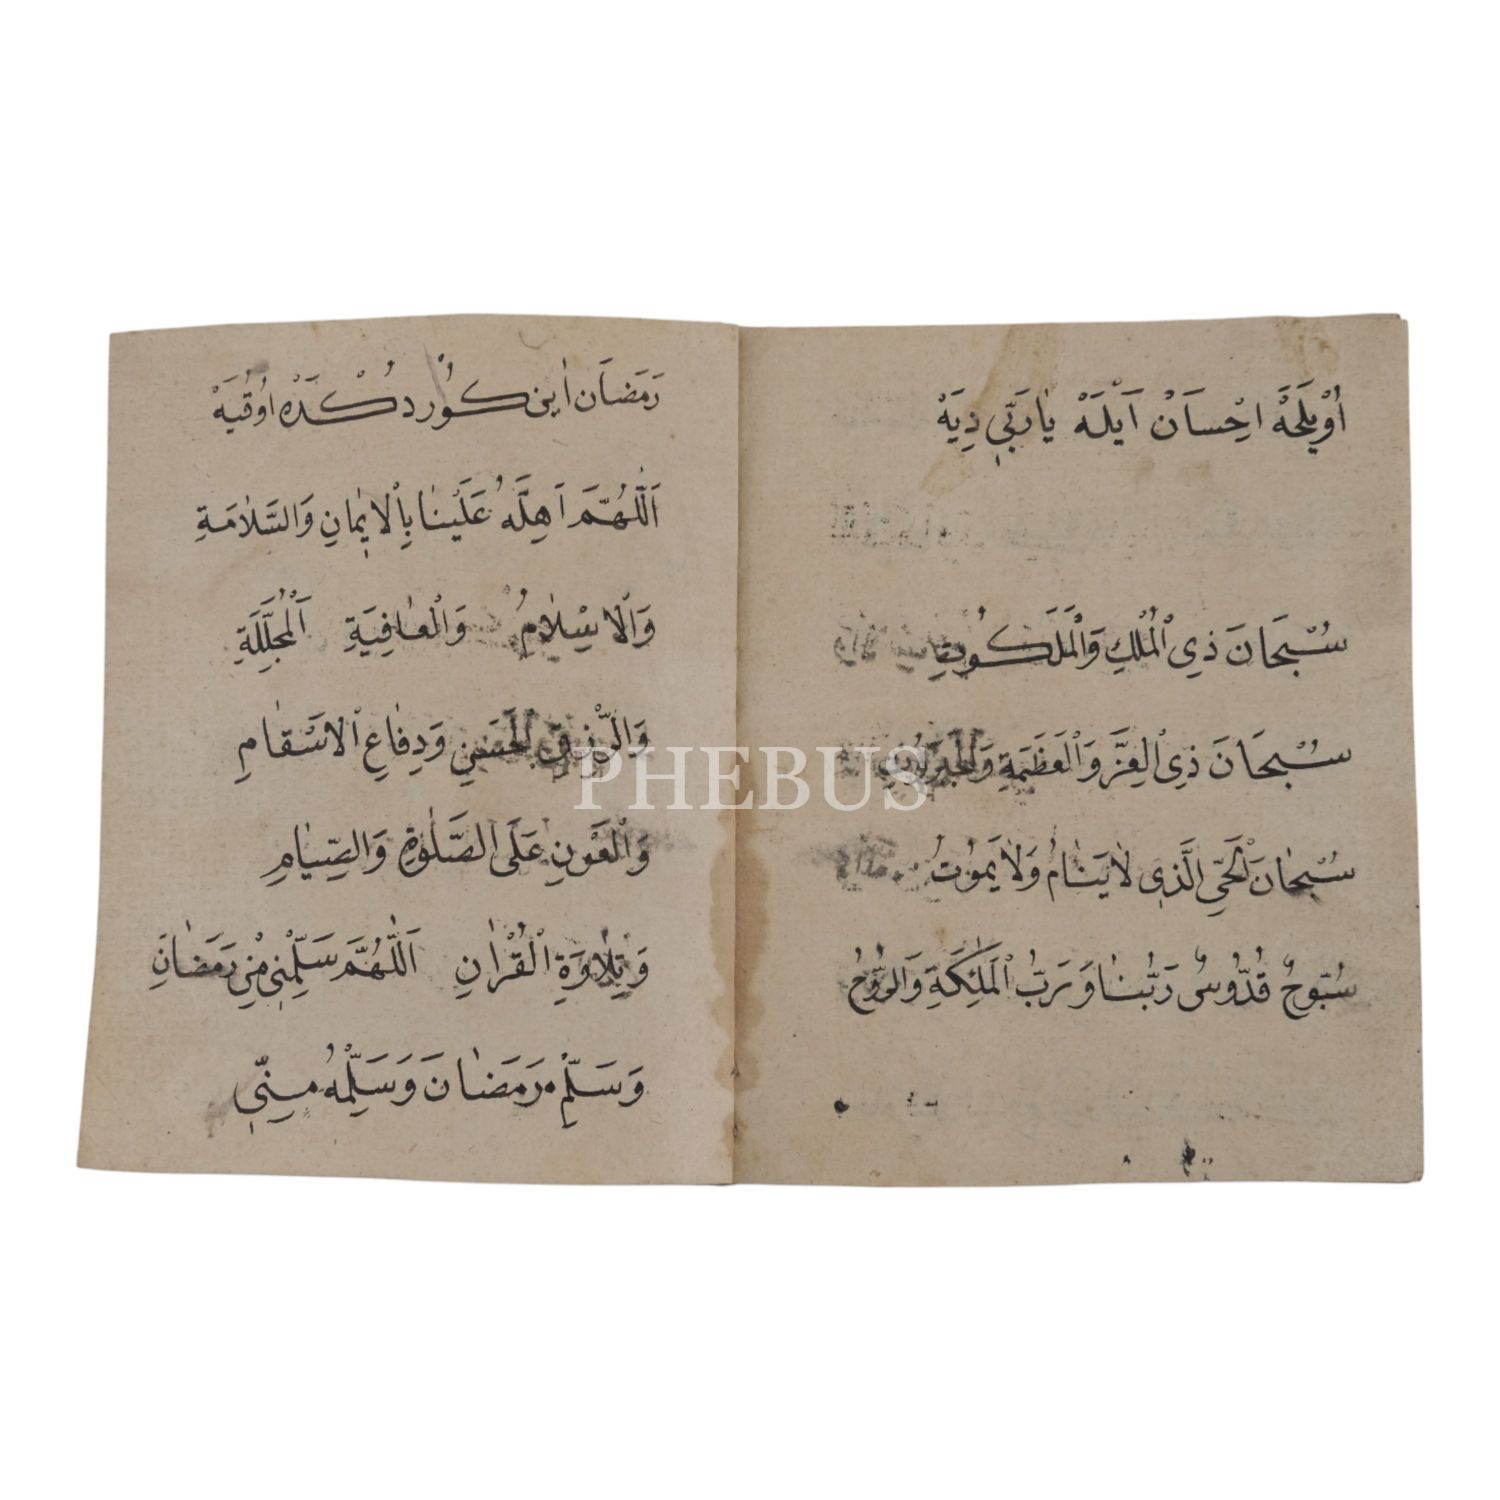 اُوْيلَهَ اِحْسَانْ اَيْلَهْ يَارَبّي دِيَهْ
سُبْحَانَ ذِي الْمُلْكِ وَالْمَلَكُوتِ
سُبْحَانَ ذِي الْعِزَّ وَالْعَظَمَةِ وَالْجَبَرُوتِ
سُبْحَانَ الْحَيِّ الَّذِي لَا يَنَامُ وَلَا يَمُوتُ
سُبّوُحٌ قُدُّوسٌ رَبُّنَا وَرَبُّ الْمَلَئِكَةِ وَالرُّوُحُ
رَمَضَان اَين كُورد كْدَهْ اوُقُيَهْ
اَللّٰهُمَّ اَهِلَّهُ عَلَيْنَا بِالْاِيمَانِ وَالسَّلَامَةِ
وَالْاِسْلَامُ وَالْعَافِيَةِ اَلْمُجَلِّلَةِ
وَالرِّزْقِ الْحَسَنِ وَدِفَاعِ الْاَسْقَامِ
وَالْعَوْنِ عَلَى الصَّلٰوةِ وَالصِّيَامِ
وَتِلَاوَةِ الْقُرْاٰنِ اَللّٰهُمَّ سَلِّمْنِي مِنْ رَمَضَانِ
وَسَلِّمْ رَمَضَانَ وَسَلِّمْهُ مِنِّي
PHEBUS